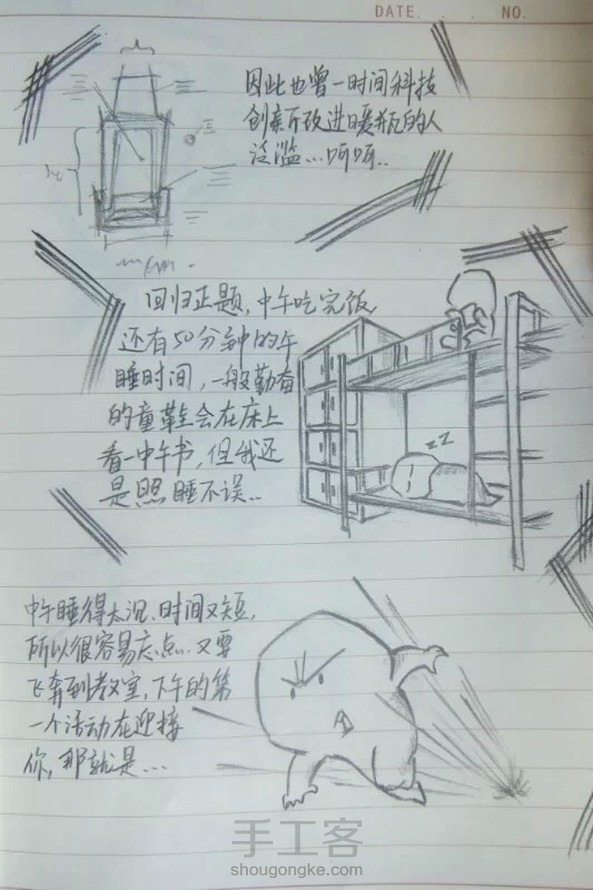 DATE. . . NO.
因此也曾一时间科技
创新改进暖瓶的人
泛滥...呵呵..
回归正题,中午吃完饭
还有50分钟的午
睡时间,一般勤奋
的童鞋会在床上
看一中午书,但我还
是照睡不误..
zZ
中午睡得太沉、时间又短,
所以很容易忘点..又要
飞奔到教室,下午的第
一个活动在迎接
你,那就是...
手工客
shougongke.com